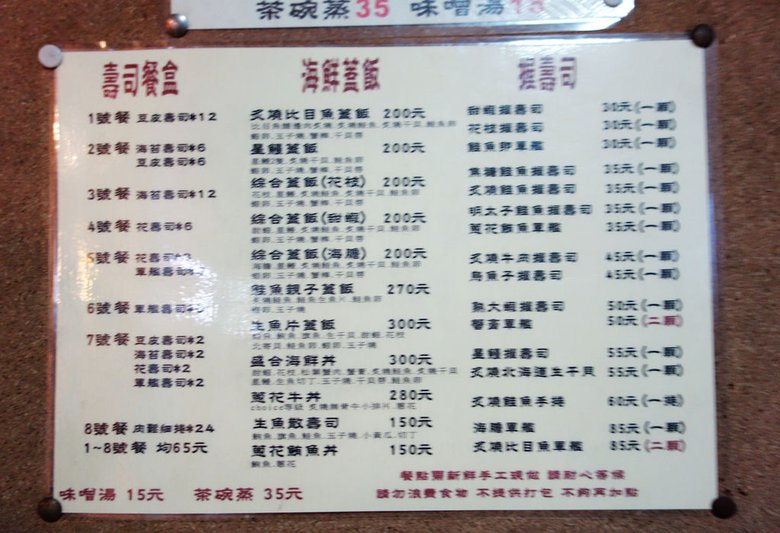 茶碗蒸35 味噌湯15
壽司餐盒
1號餐 豆皮壽司*12
2號餐 海苔壽司*6
豆皮壽司*6
3號餐 海苔壽司*12
4號餐 花壽司*6
5號餐 花壽司
軍艦壽司
6號餐 軍艦壽司
7號餐 豆皮壽司*2
海苔壽司*2
花壽司*2
軍艦壽司*2
8號餐 肉鬆細捲*24
1~8號餐 均65元
海鮮蓋飯
炙燒比目魚蓋飯 200元
星鰻蓋飯 200元
綜合蓋飯(花枝) 200元
綜合蓋飯(甜蝦) 200元
綜合蓋飯(海膽) 200元
鮭魚親子蓋飯 270元
炙燒鮭魚.鮭魚生魚片.鮭魚卵
生魚片蓋飯 300元
盛合海鮮丼 300元
蔥花牛丼 280元
choice等級 炙燒無骨牛小排片.蔥花
生魚散壽司 150元
鮪魚.旗魚.鮭魚.玉子燒.小黃瓜.切丁
蔥花鮪魚丼 150元
鮪魚.蔥花
握壽司
甜蝦握壽司 30元(一顆)
花枝握壽司 30元(一顆)
鮭魚卵軍艦 30元(一顆)
焦糖鮭魚握壽司 35元(一顆)
炙燒鮭魚握壽司 35元(一顆)
明太子鮭魚握壽司 35元(一顆)
蔥花鮪魚軍艦 35元(一顆)
炙燒牛肉握壽司 45元(一顆)
烏魚子握壽司 45元(一顆)
熟大蝦握壽司 50元(一顆)
蟹膏軍艦 50元(二顆)
星鰻握壽司 55元(一顆)
炙燒北海道生干貝 55元(一顆)
炙燒鮭魚手捲 60元(一捲)
海膽軍艦 85元(一顆)
炙燒比目魚軍艦 85元(二顆)
味噌湯 15元 茶碗蒸 35元
餐點需新鮮手工現做 請耐心等候
請勿浪費食物 不提供打包 不夠再加點